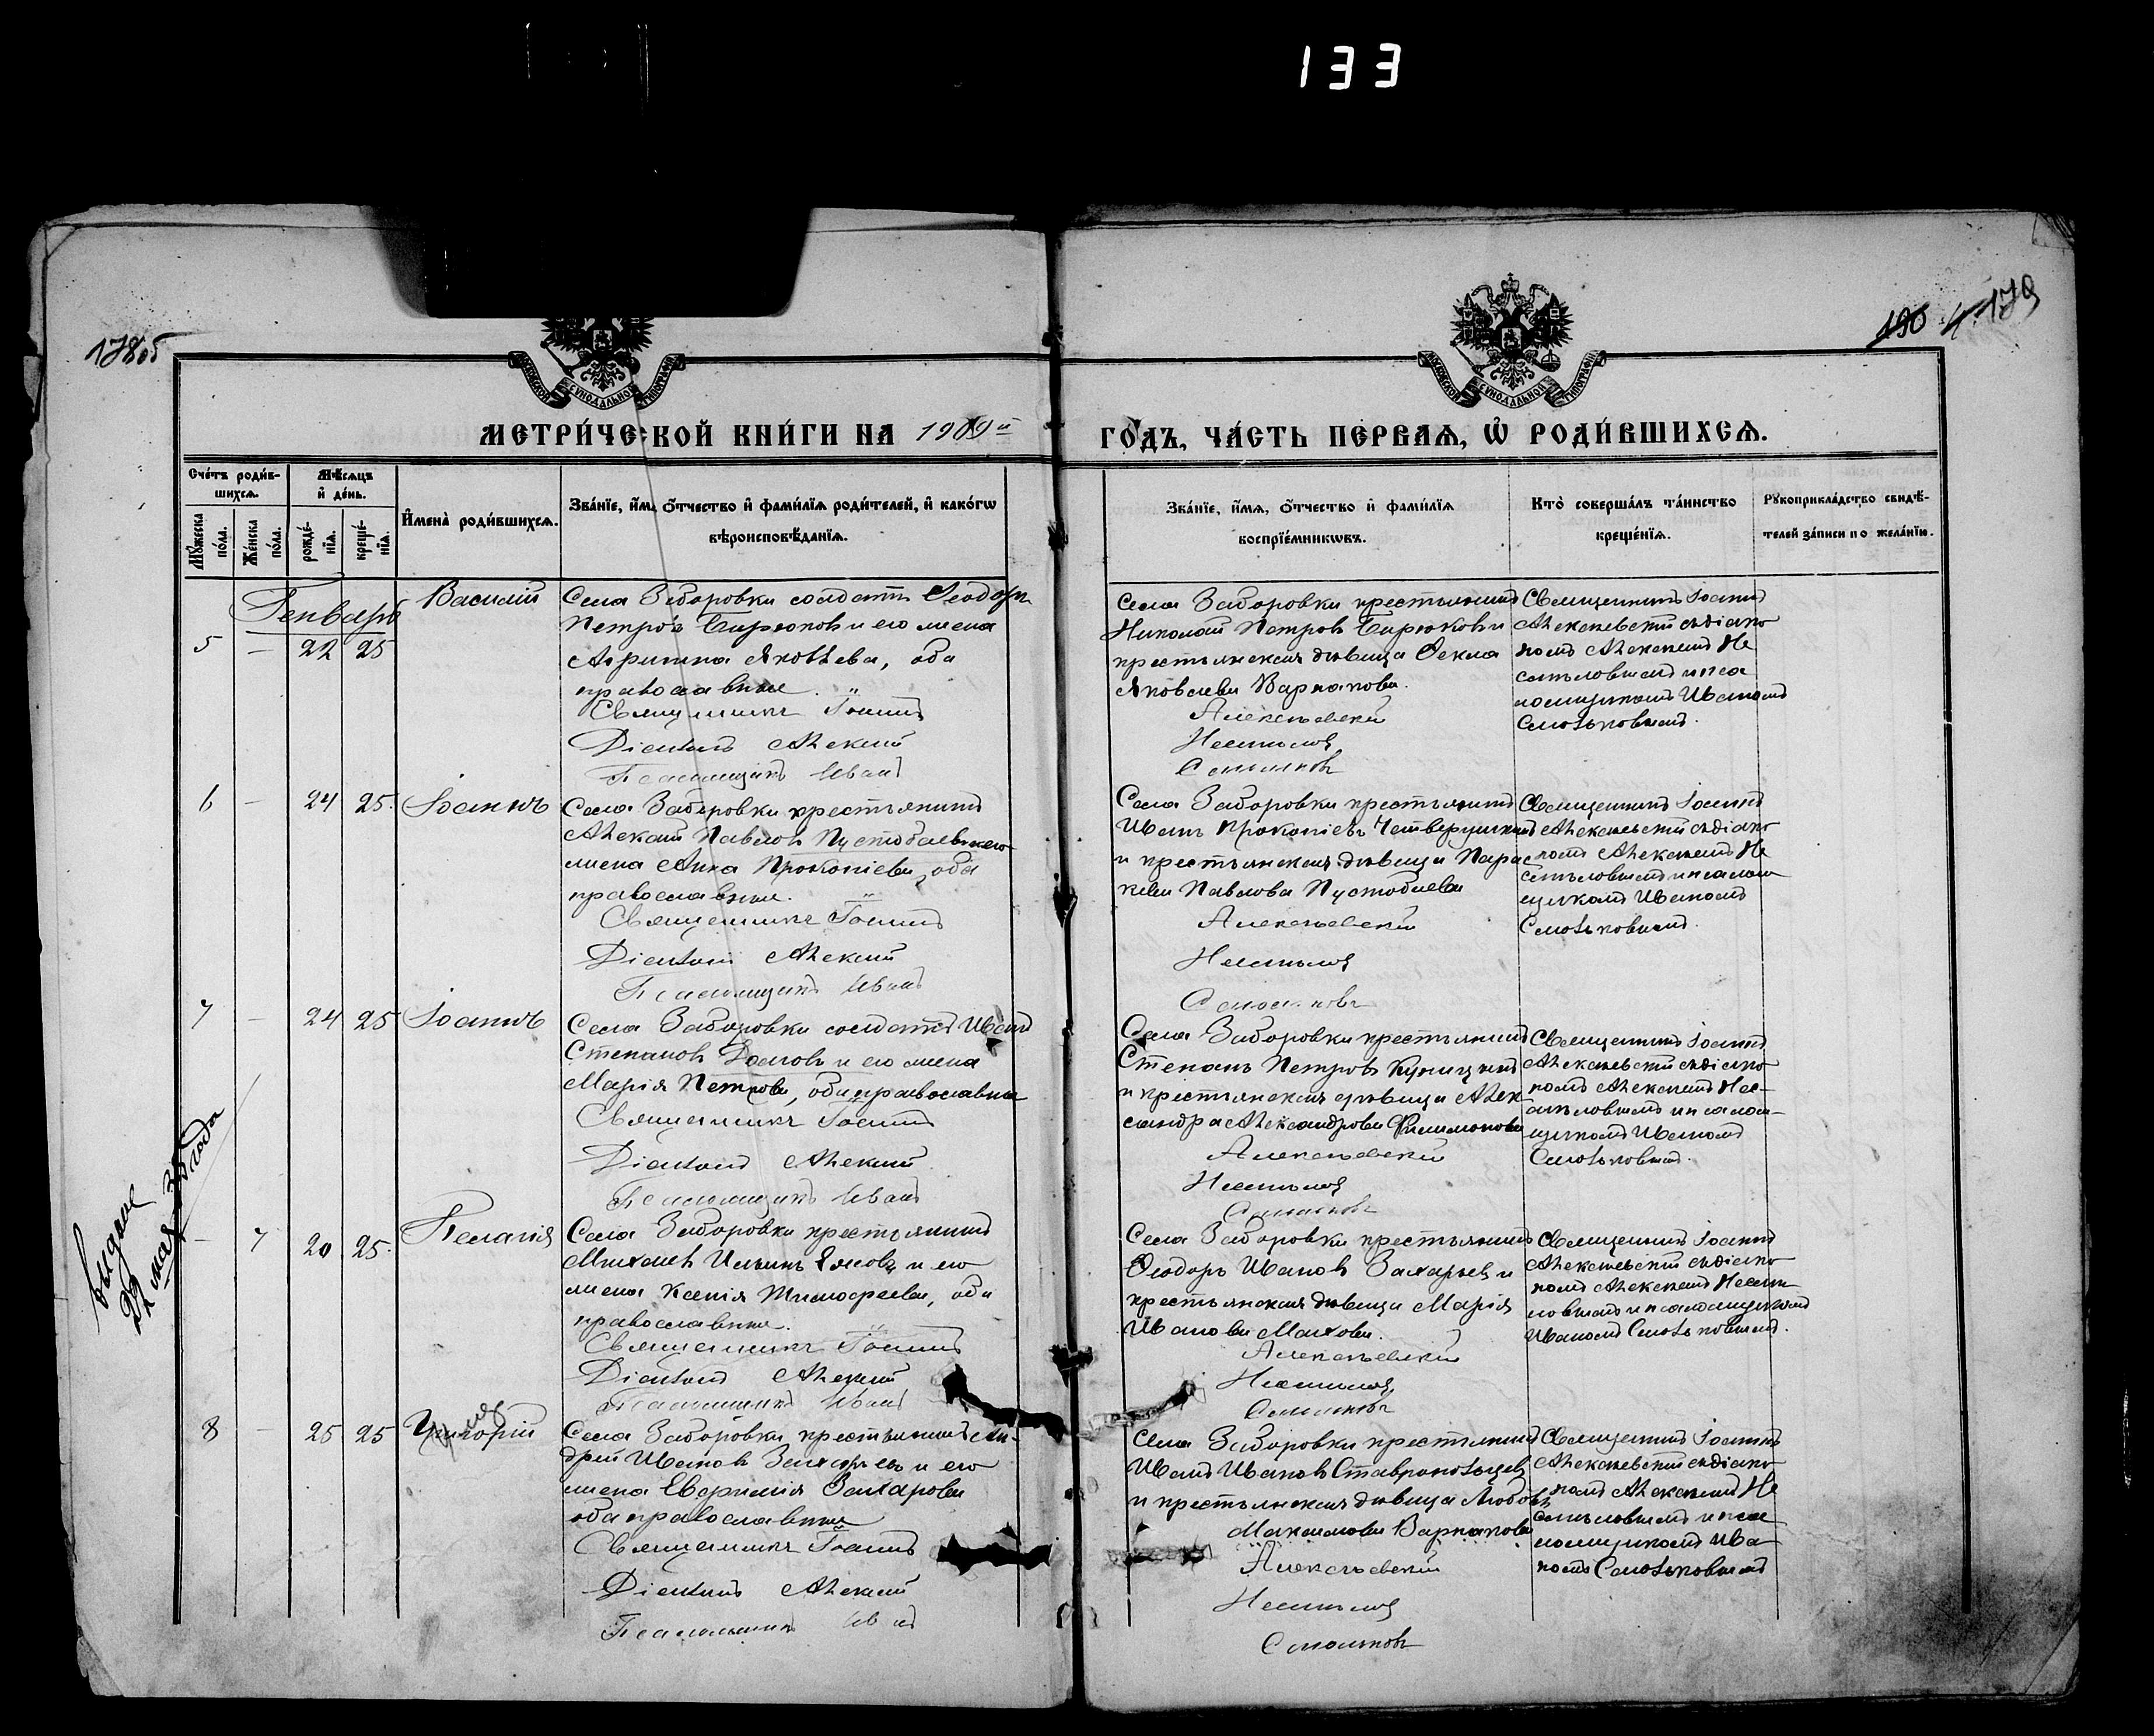 133
178об
190 179
МОСКОВСКОЙ СѴНОДАЛЬНОЙ ТИПОГРАФІИ
МОСКОВСКОЙ СѴНОДАЛЬНОЙ ТИПОГРАФІИ
МЕТРИ́ЧЕСКОЙ КНИ́ГИ НА 1909й
ГО́ДЪ, ЧА́СТЬ ПЕ́РВАѦ, Ѡ҆ РОДИ́ВШИХСѦ.
Сче́тъ роди́в-
шихсѧ.
Мꙋ́жеска по́ла.
Же́нска по́ла.
Мѣ́сѧцъ
и҆ де́нь.
рожде́-
нїѧ.
креще́-
нїѧ.
И҆мена̀ роди́вшихсѧ.
Зва́нїе, и҆́мѧ, ѻ҆́тчество и҆ фами́лїѧ роди́телей, и҆ како́гѡ
вѣроисповѣ́данїѧ.
Зва́нїе, и҆́мѧ, ѻ҆́тчество и҆ фами́лїѧ
воспрїе́мникѡвъ.
Кто̀ соверша́лъ та́инство
креще́нїѧ.
Рꙋкоприкла́дство свидѣ́-
телей за́писи по жела́нїю.
Генварь
5 – 22 25 Василій
Села Заборовки солдатъ Ѳеодоръ
Петровъ Бирюковъ и его жена
Агрипина Яковлева, оба
православные.
Священникъ Іоаннъ
Діаконъ Алексій
Псаломщикъ Иванъ
Села Заборовки крестьянинъ
Николай Петровъ Бирюковъ и
крестьянская дѣвица Ѳекла
Яковлева Варнакова.
Алексѣевскій
Несмѣловъ
Смольковъ
Священникъ Іоаннъ
Алексѣевскій съ діако-
номъ Алексіемъ Не
смѣловымъ и пса
ломщикомъ Иваномъ
Смольковымъ.
6 – 24 25. Іоаннъ
Села Заборовки крестьянинъ
Алексѣй Павловъ Пустобаевъ и его
жена Анна Прокопіева, оба
православные.
Священникъ Іоаннъ
Діаконъ Алексій
Псаломщикъ Иванъ
Села Заборовки крестьянинъ
Иванъ Прокопіевъ Четверушкинъ
и крестьянская дѣвица Парас
кева Павлова Пустобаева
Алексѣевскій
Несмѣловъ
Смольковъ
Священникъ Іоаннъ
Алексѣевскій съ діако
номъ Алексіемъ Не
смѣловымъ и псалом
щикомъ Иваномъ
Смольковымъ.
7 – 24 25 Іоаннъ
Села Заборовки солдатъ Иванъ
Степановъ Долговъ и его жена
Марія Петрова, оба православные
Священникъ Іоаннъ
Діаконъ Алексій
Псаломщикъ Иванъ
Села Заборовки крестьянинъ
Степанъ Петровъ Куницынъ
и крестьянская дѣвица Алек
сандра Александрова Филимонова
Алексѣевскій
Несмѣловъ
Смольковъ
Священникъ Іоаннъ
Алексѣевскій съ діако
номъ Алексіемъ Нес-
мѣловымъ и псалом-
щикомъ Иваномъ
Смольковымъ.
22 мая 35 года
– 7 20 25. Пелагія
Села Заборовки крестьянинъ
Михаилъ Ильинъ и его
жена Ксенія Тимоѳеева, оба
православные.
Священникъ Іоаннъ
Діаконъ Алексій
Псаломщикъ Иванъ
Села Заборовки крестьянинъ
Ѳеодоръ Ивановъ Захарьевъ и
крестьянская дѣвица Марія
Иванова Махова.
Алексѣевскій
Несмѣловъ
Смольковъ
Священникъ Іоаннъ
Алексѣевскій съ діако
номъ Алексіемъ Несмѣ
ловымъ и псаломщикомъ
Иваномъ Смольковымъ.
8 – 25 25 Григорій
Села Заборовки крестьянинъ Ан-
дрей Ивановъ Захарьевъ и его
жена Евфимія Захарова
оба православные
Священникъ Іоаннъ
Діаконъ Алексій
Псаломщикъ Иванъ
Села Заборовки крестьянинъ
Иванъ Ивановъ Ставропольцевъ
и крестьянская дѣвица Любовь
Максимова Варнакова
Алексѣевскій
Несмѣловъ
Смольковъ
Священникъ Іоаннъ
Алексѣевскій съ діако
номъ Алексіемъ Не
смѣловымъ и пса
ломщикомъ Ива-
номъ Смольковымъ